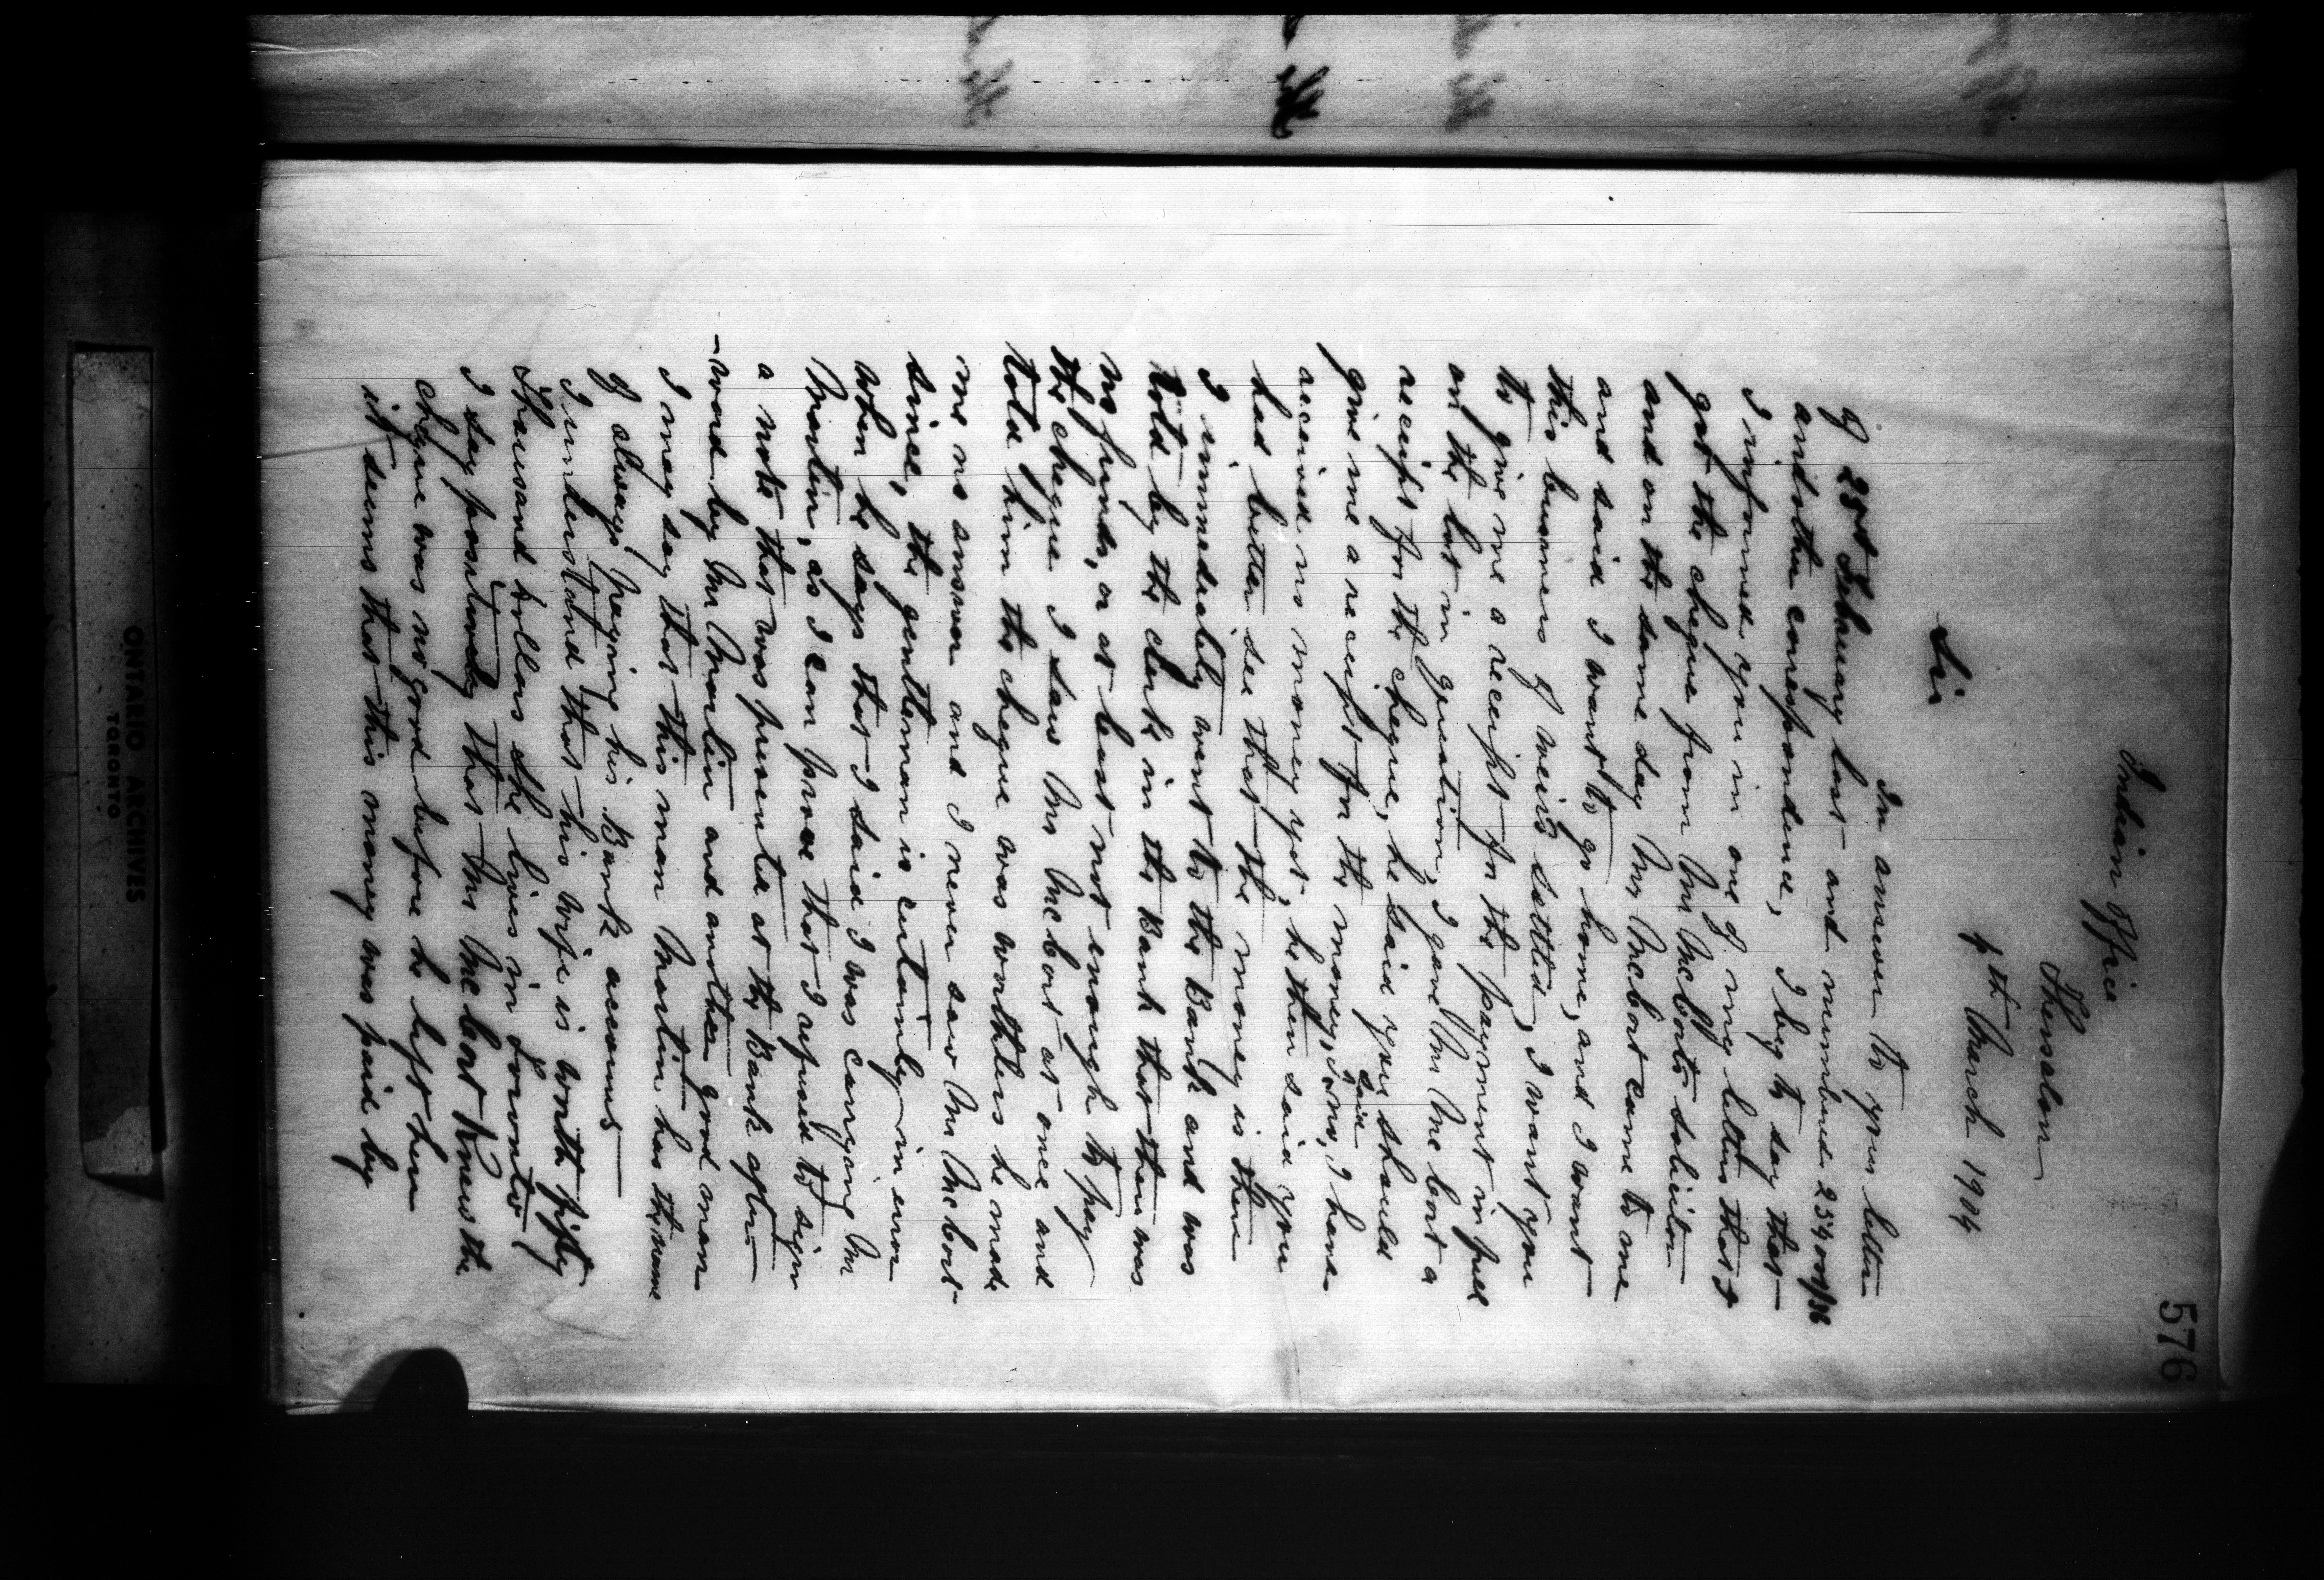 576
Indian Office
Thessalon
4th March 1904
Sir
In answer to your letter
of 25th February last and numbered 254008/36
and other correspondence, I beg to say that
I informed you in one of my letters that I
got the cheque from Mr McCort's solicitor
and on the same day Mr McCort came to me
and said I want to go home, and I want
this business of weirs settled, I want you
to give me a receipt for the payment in full
on the lot in question, I gave Mr McCort a
receipt for the cheque, he said you should
give me a receipt for the money, I said no, I have
received no money yet, he then said you
had better see that the money is there
I immediately went to the Bank and was
told by the clerk in the Bank that there was
no funds, or at least not enough to pay
the cheque I saw Mr McCort at once and
told him the cheque was worthless he made
me no answer and I never saw Mr McCort
since, the gentleman is certainly in error
when he says that I said I was carrying Mr
Martin, as I can prove that I refused to sign
a note that was presented at the Bank after
-ward by Mr Martin and another good man
I may say that this man Martin has the name
of always paying his Bank accounts
I understand that his wife is worth fifty
Thousand dollars she lives in Toronto
I say positively that Mr McCort knew the
cheque was no good before he left here
it seems that this money was paid by
ONTARIO ARCHIVES
TORONTO